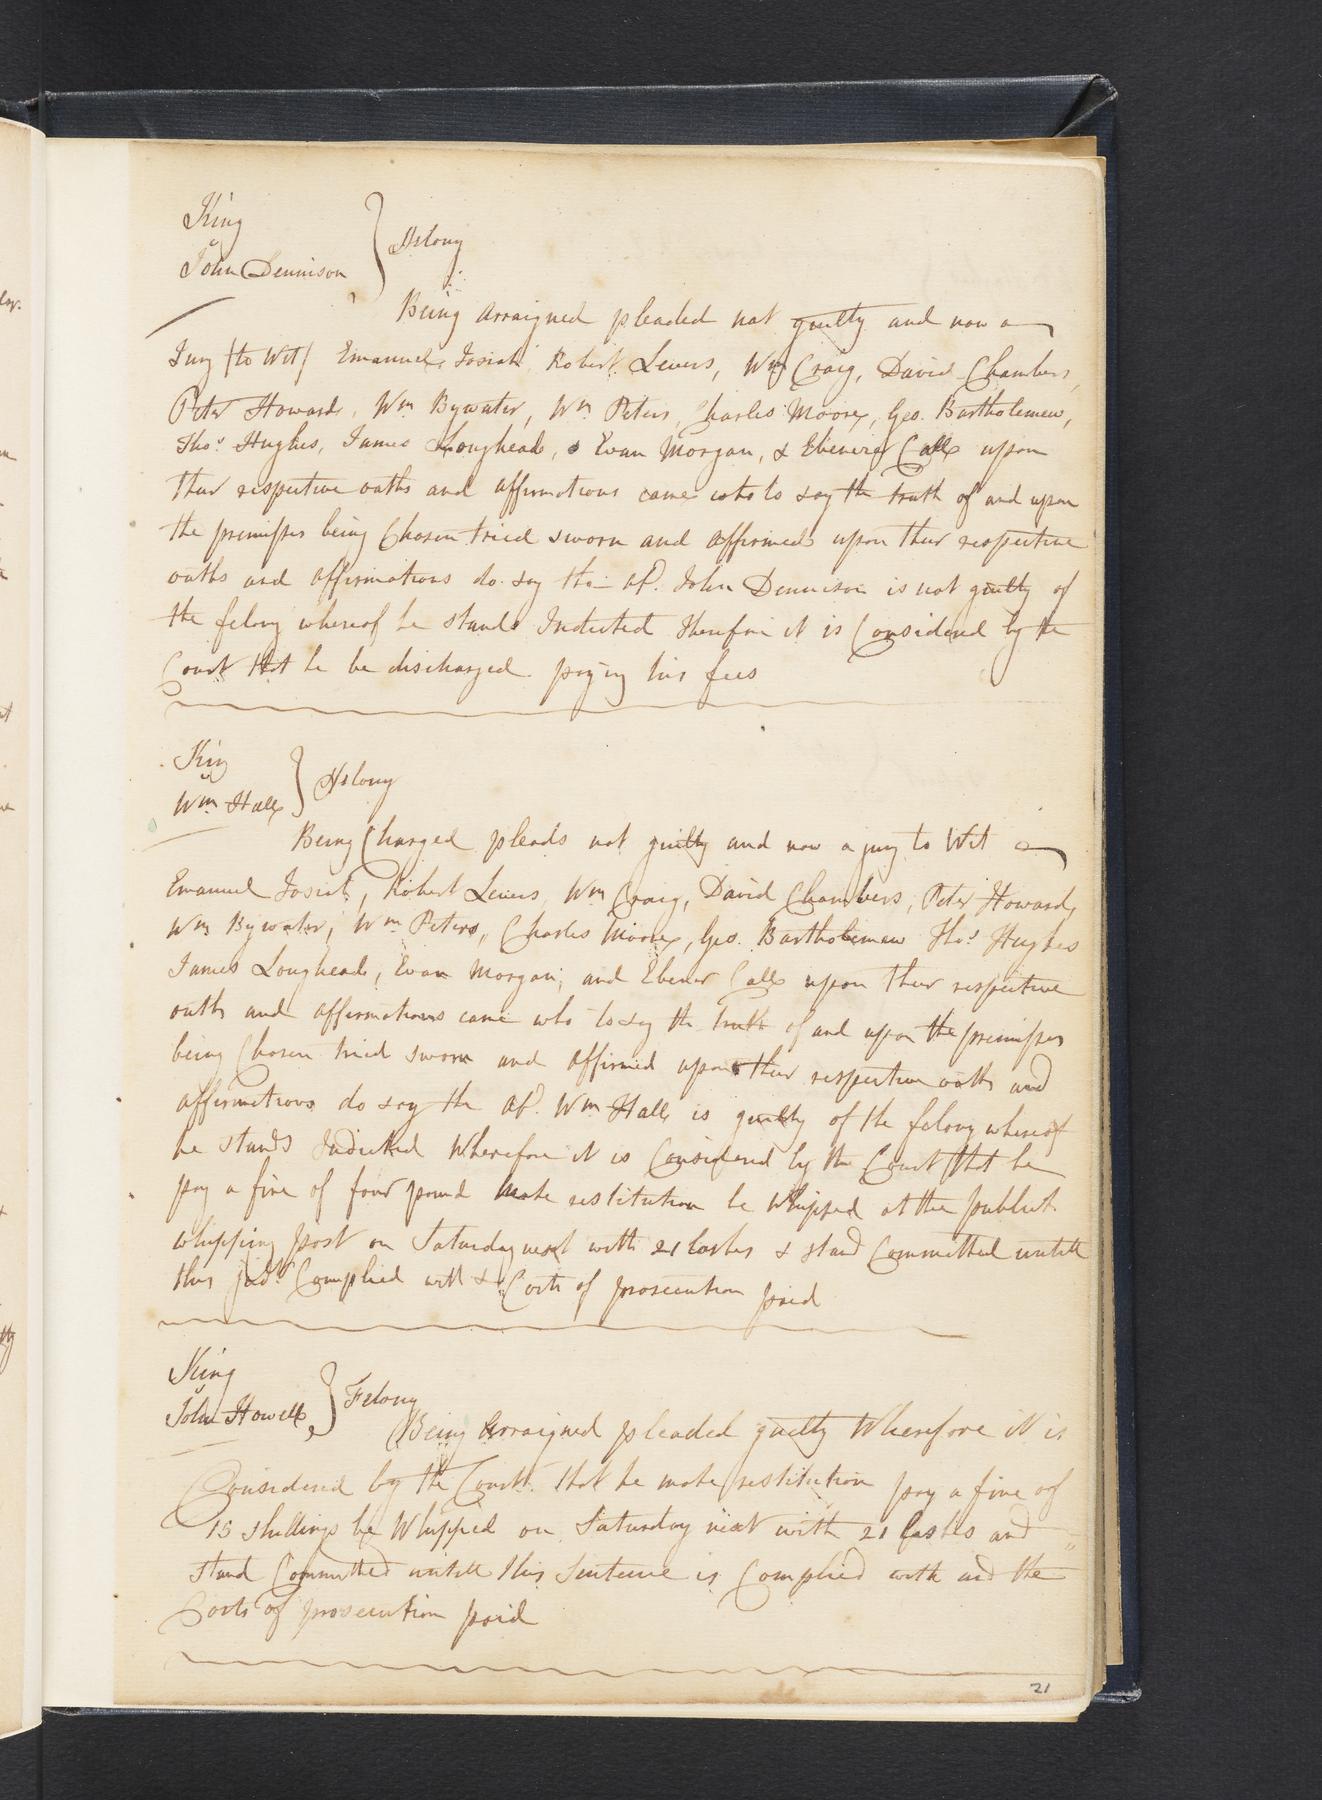 King
v
John Dennison } Felony
Being Arraigned pleaded not guilty and now a
Jury (to Wit) Emanuel Josiah Robert Levers, Wm Craig, David Chambers,
Peter Howard, Wm Bywater, Wm Peters, Charles Moore, Geo. Bartholemew,
Thos. Hughes, James Loughead, Evan Morgan, & Ebenezer Call upon
their respective oaths and affirmations came who to say the truth of and upon
the premisses being Chosen tried sworn and affirmed upon their respective
oaths and affirmations do say the afd. John Dennison is not guilty of
the felony whereof he stands Indicted therefore it is Considered by the
Court that he be discharged paying his fees
King
v
Wm Hall } Felony
Being Charged pleads not guilty and now a jury to Wit
Emanuel Josiah, Robert Levers, Wm Craig, David Chambers, Peter Howard,
Wm Bywater, Wm Peters, Charles Moore, Geo. Bartholemew Thos. Hughes
James Loughead, Evan Morgan, and Ebener Call upon their respective
oaths and affirmations came who to say the truth of and upon the premisses
being Chosen tried sworn and affirmed upon their respective oaths and
affirmations do say the afd. Wm Hall is guilty of the felony whereof
he stands Indicted Wherefore it is Considered by the Court that he
pay a fine of four pound Make restitution be Whipped at the publick
whipping post on Saturday next with 21 lashes & stand Committed untill
this Judt. Complied with & Costs of prosecution paid
King
v
John Howell } Felony
Being Arraigned pleaded guilty Wherefore it is
Considered by the Court that he make restitution pay a fine of
15 shillings be Whipped on Saturday next with 21 lashes and
stand Committed untill this Sentence is Complied with and the
Costs of prosecution paid
21